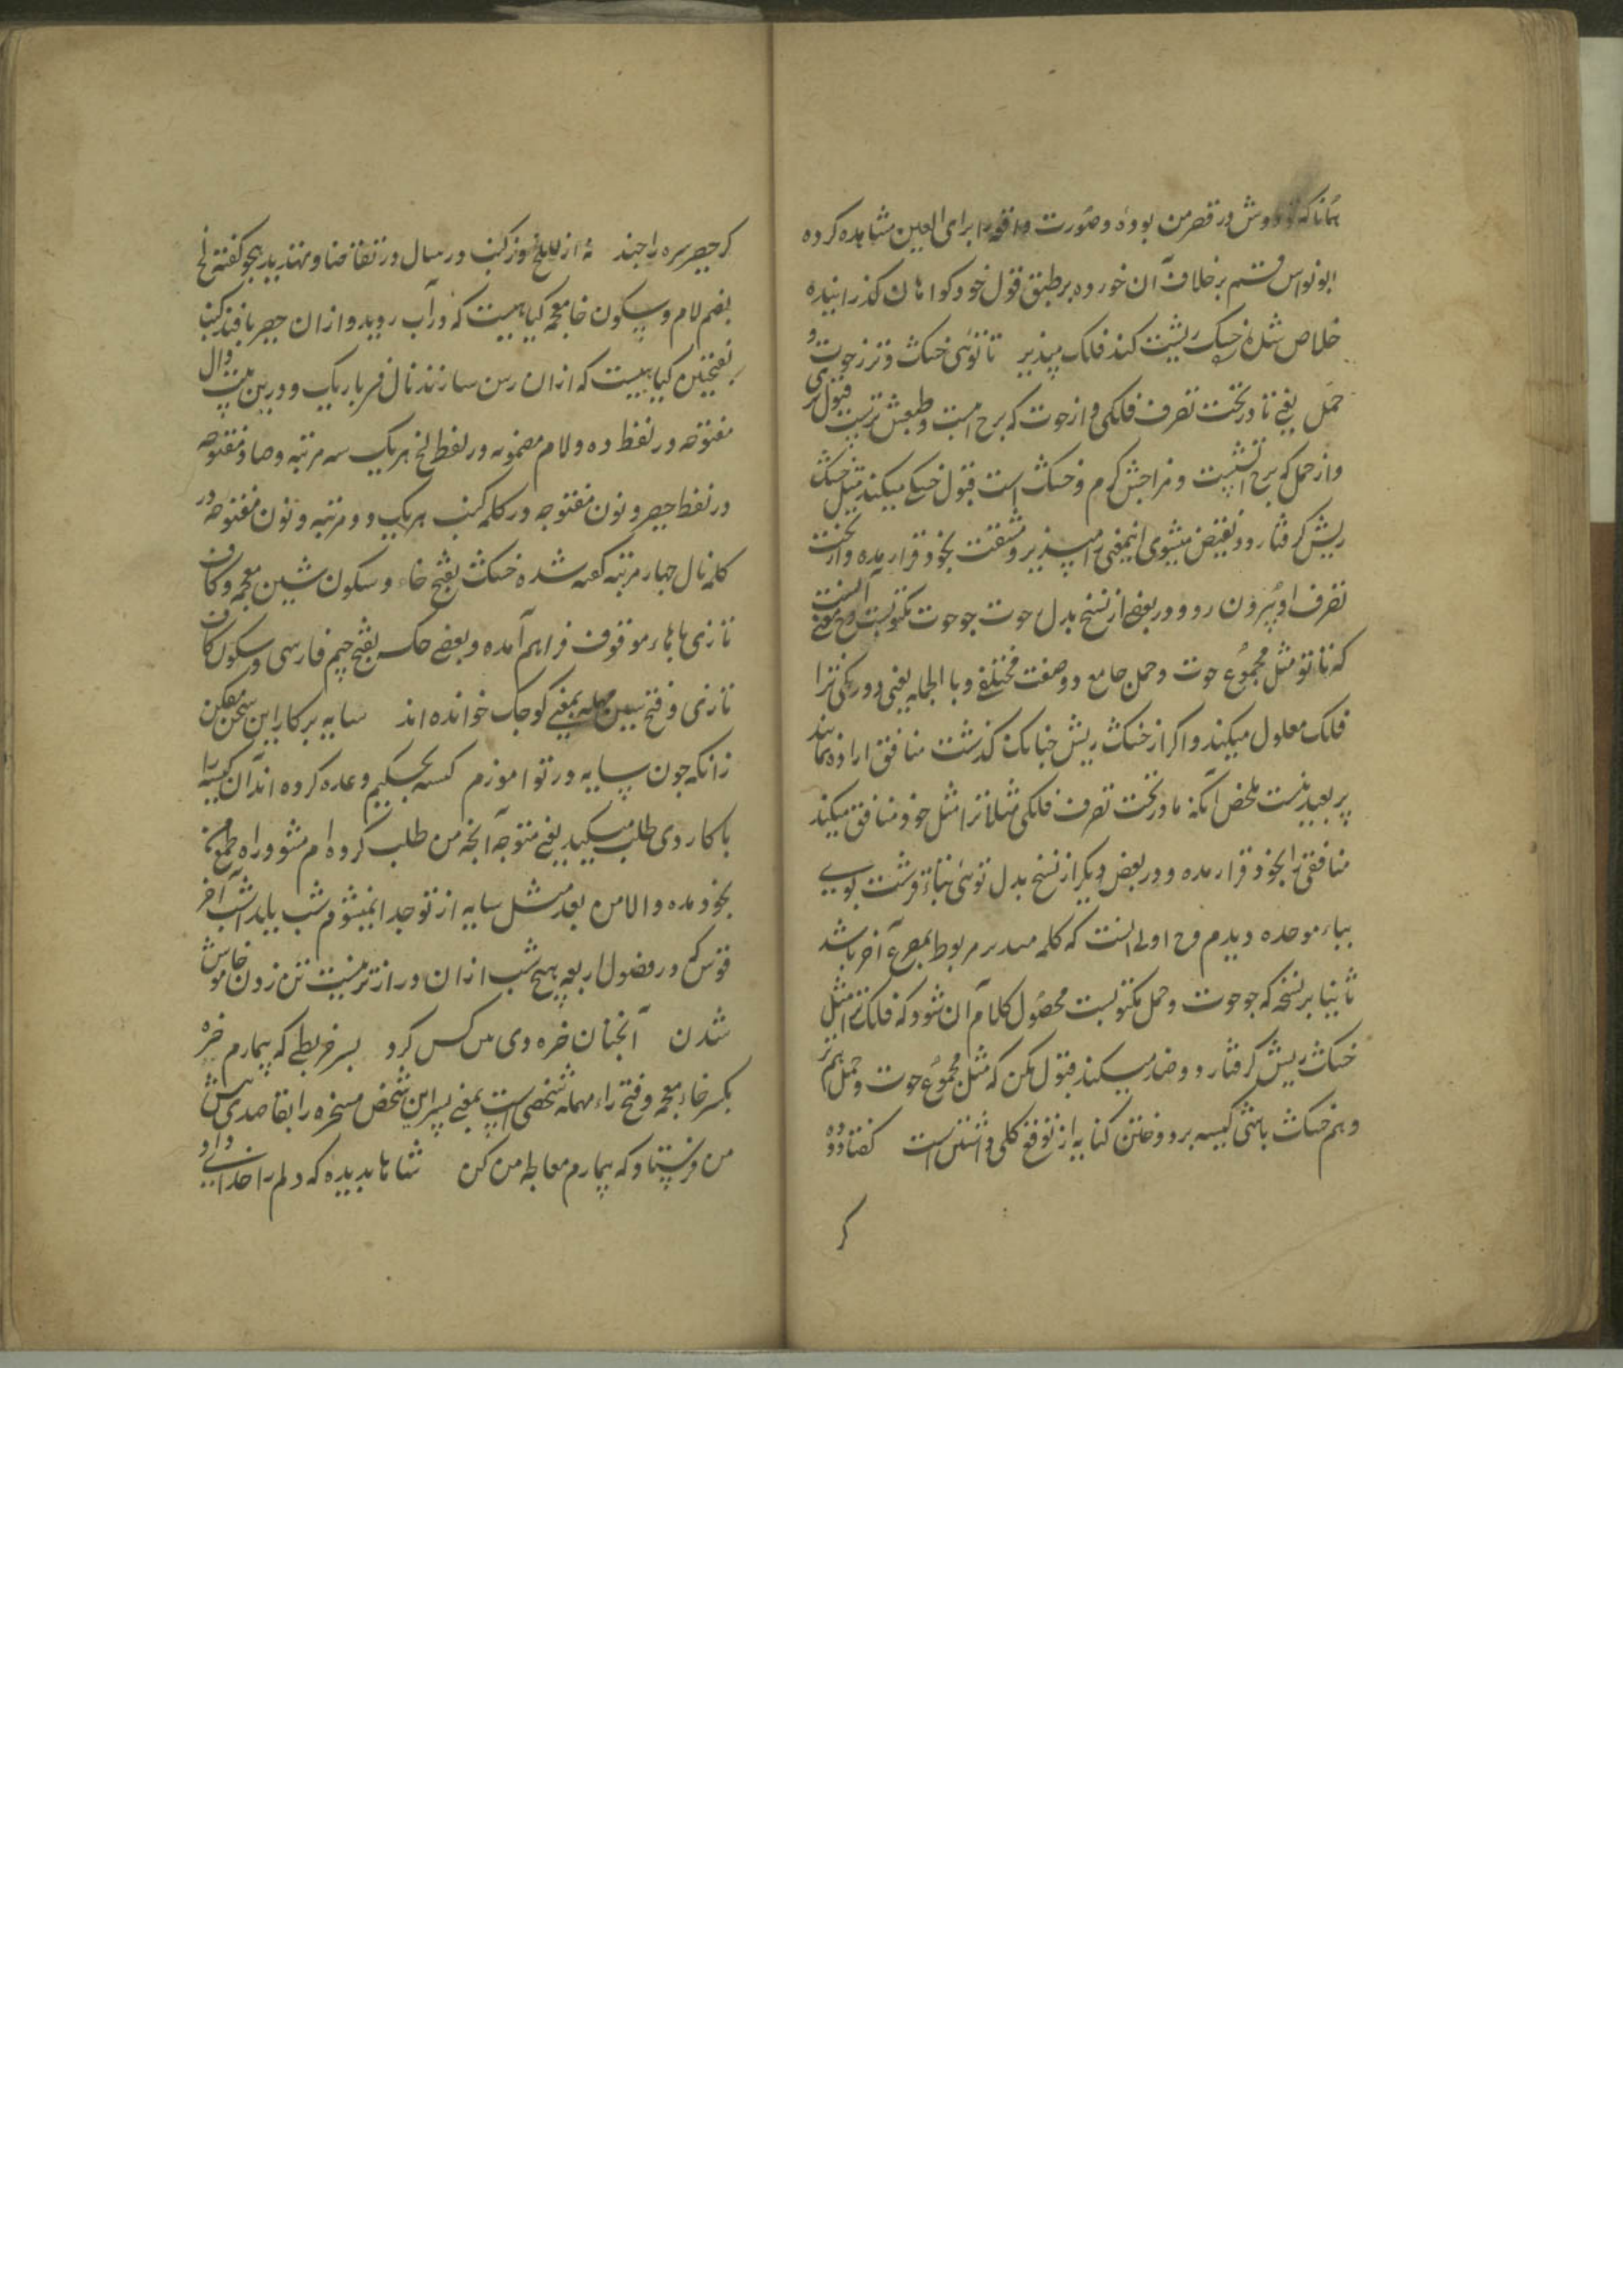 همانا که تو دوش در قصر من بوده و صورت واقعه را برای العین مشاهده کرده
ابونواس قسم بر خلاف آن خورده بر طبق قول خود گواهان گذرانیده
خلاص شد خشک ریشت کند فلک مپذیر تا توئی خشک و تر ز حوت و
حمل یعنی تا در تحت تصرف فلکی و از حوت که برج است و طبعش تریست قبول تری
و از حمل که برج آتشیست و مزاجش گرم و خشک است قبول خشکی میکند مثل خشک
ریش گرفتار دو نقیض میشوی اینمعنی را مپذیر و مشقت بخود قرار مده و از تحت
تصرف او بیرون رو و در بعضی از نسخ بدل حوت چو حوت مکتوبست و ح معنی آنست
که تا تو مثل مجموع حوت و حمل جامع دو صفت مختلفی و بالجمله یعنی دو رنگی ترا
فلک معلول میکند و اگر از خشک ریش چنانک گذشت منافق اراده نمایند
پر بعید نیست ملخص آنکه ما در تحت تصرف فلکی مثلا ترا مثل خود منافق میکند
منافقی را بخود قرار مده و در بعض دیگر از نسخ بدل توئی بتاء قرشت بویی
بباء موحده دیدم و ح اولی انست که کلمه مربوط بمصرع آخر باشد
ثانیا بر نسخه که چو حوت و حمل مکتوبست محصول کلام آن شود که فلک ترا مثل
خشک ریش گرفتار دو ضد میکند قبول مکن که مثل مجموع حوت و حمل هم تر
و هم خشک باشی کیسه بر دوختن کنایه از توقع کلی داشتن است گفتا دو ده
کر
کر حصر سره را چند نه از للخ نوز کنب در سال در تقاضا و مهتدر بد بیجو گفته لخ
بضم لام و سکون خا معجمه گیاهیست که در آب روید و از ان حصیر بافند کنب
بفتحتین گیاهیست که از ان رسن سازند نال قر باریک و درین بیت دال
مفتوحه در لفظ ده و لام مضمومه در لفظ لخ هر یک سه مرتبه و صاد مفتوحه
در لفظ حصر و نون مفتوحه در کلمه کنب هر یک دو مرتبه و نون مفتوحه در
کلمه نال چهار مرتبه گفته شده خشک بفتح خاء و سکون شین معجمه و کاف
تازی با هاء موقوف فراهم آمده و بعضی چکسه بفتح جیم فارسی و سکون کاف
تازی و فتح سین مهمله بمعنی کوچک خوانده اند سایه بر کار این سخن مفکن
زانکه چون سایه در تو آموزم کسه بحکیم وعده کرده اند آن کیسه را
با کاردی طلب میکند یعنی متوجه آنچه من طلب کرده ام مشو و راه طمع
بخود مده و الا من بعد مثل سایه از تو جدا نمیشوم شب یلدا شب آخر
قوس که در فصول اربعه هیچ شب از ان درازتر نیست تن زدن خاموش
شدن آنچنان خره دی بس کس کرد پسر خر بطی که بیمارم خره
بکسر خاء معجمه و فتح راء مهمله شخصی است بمعنی پسر این شخص مسخره را بقاصدی پیش
من فرستاد که بیمارم معالجه من کن شاها بدیده که دلم را خدای داد و